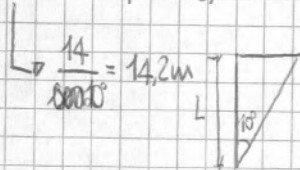 14
/ cos10° = 14,2m
L
10°